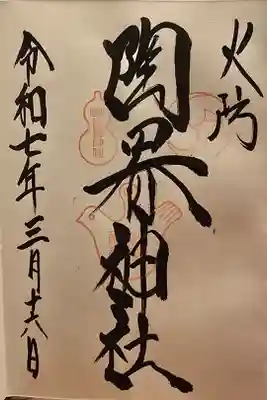 火防
陶器神社
令和七年三月十六日